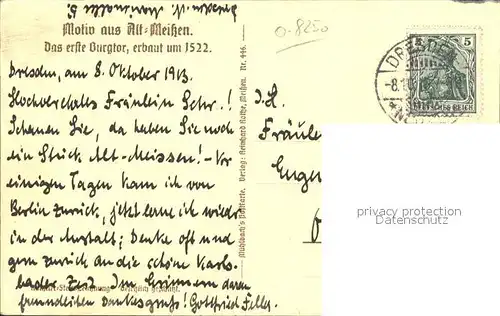 Motiv aus Alt-Meißen.
Das erste Burgtor, erbaut um 1522.
0-8250
Dresden, am 8. Oktober 1913.
Hochverehrtes Fräulein Schr.!
Schauen Sie, da haben Sie noch
ein Stück Alt-Meissen! - Vor
einigen Tagen kam ich von
Berlin zurück, jetzt lerne ich wieder
in der Anstalt; Denke oft und
gern zurück an die schöne Karls-
bader Zeit. Im Erinnern daran
freundlichen Dankesgruß! Gottfried Feller.
Mühlbach's Postkarte. Verlag: Reinhard Rothe, Meißen. Nr. 446.
Fräule
Eugen
DRESDEN
-8.10
5
DEUTSCHES REICH
privacy protection
Datenschutz